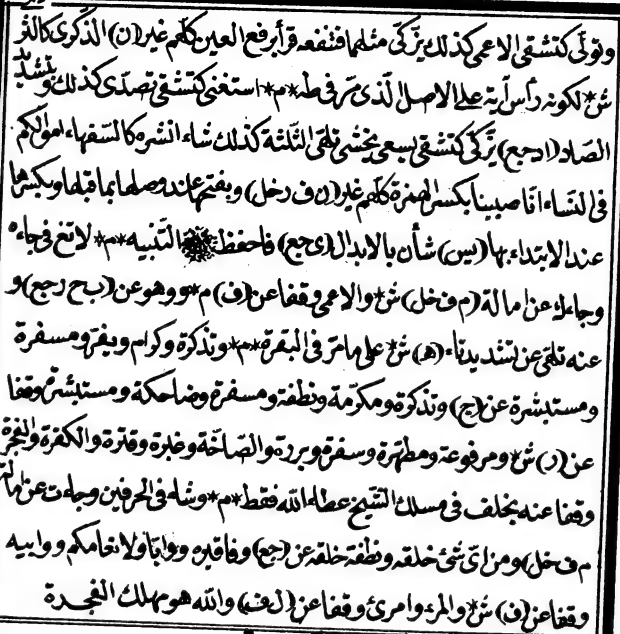 وتولى كتشقى الاعمى كذلك يزكى مثلها فتنفعه قرأ برفع العين كلهم غير (ن) الذكرى كالثر
ش* لكونه رأس آية على الاصل الذى مر فى طه *م* استغنى كتشقى تصدى كذلك وبتشديد
الصاد (ادجع) يزكى كتشقى يسعى يخشى تلهى الثلثة كذلك شاء انشره كالسفهاء اموالكم
فى النساء انا صببنا بكسر الهمزة كلهم غير (ن ف ر خل) وبفتحها عند وصلها بما قبلها وبكسرها
عند الابتداء بها (يس) شأن بالابدال (ى جع) فاحفظ التنبيه *م* لا تغ فى جاءه
وجاءك عن امالة (م ف خل) ش* والاعمى وقفا عن (ف) م* ووهو عن (ب ح ر جع) و
عنه تلهى عن بتشديد تاء (ه) ش* على ما مر فى البقرة *م* وتذكرة وكرام ويفر ومسفرة
ومستبشرة عن (ج) وتذكرة ومكرمة ونطفة ومسفرة وضاحكة ومستبشرة وقفا
عن (ر) ش* ومرفوعة ومطهرة وسفرة وبررة والصاخة وغبرة وقترة والكفرة والفجرة
وقفا عنه بخلف فى مسلك الشيخ عطاء الله فقط *م* وشاء فى الحرفين وجاءت عن امالة
(م ف خل) ومن اى شئ خلقه ونطفة خلقه عن (جع) وفاقبره ووابا ولانعامكم ووابيه
وقفا عن (ف) ش* والمرء وامرئ وقفا عن (ل ف) والله هو مهلك الفجرة